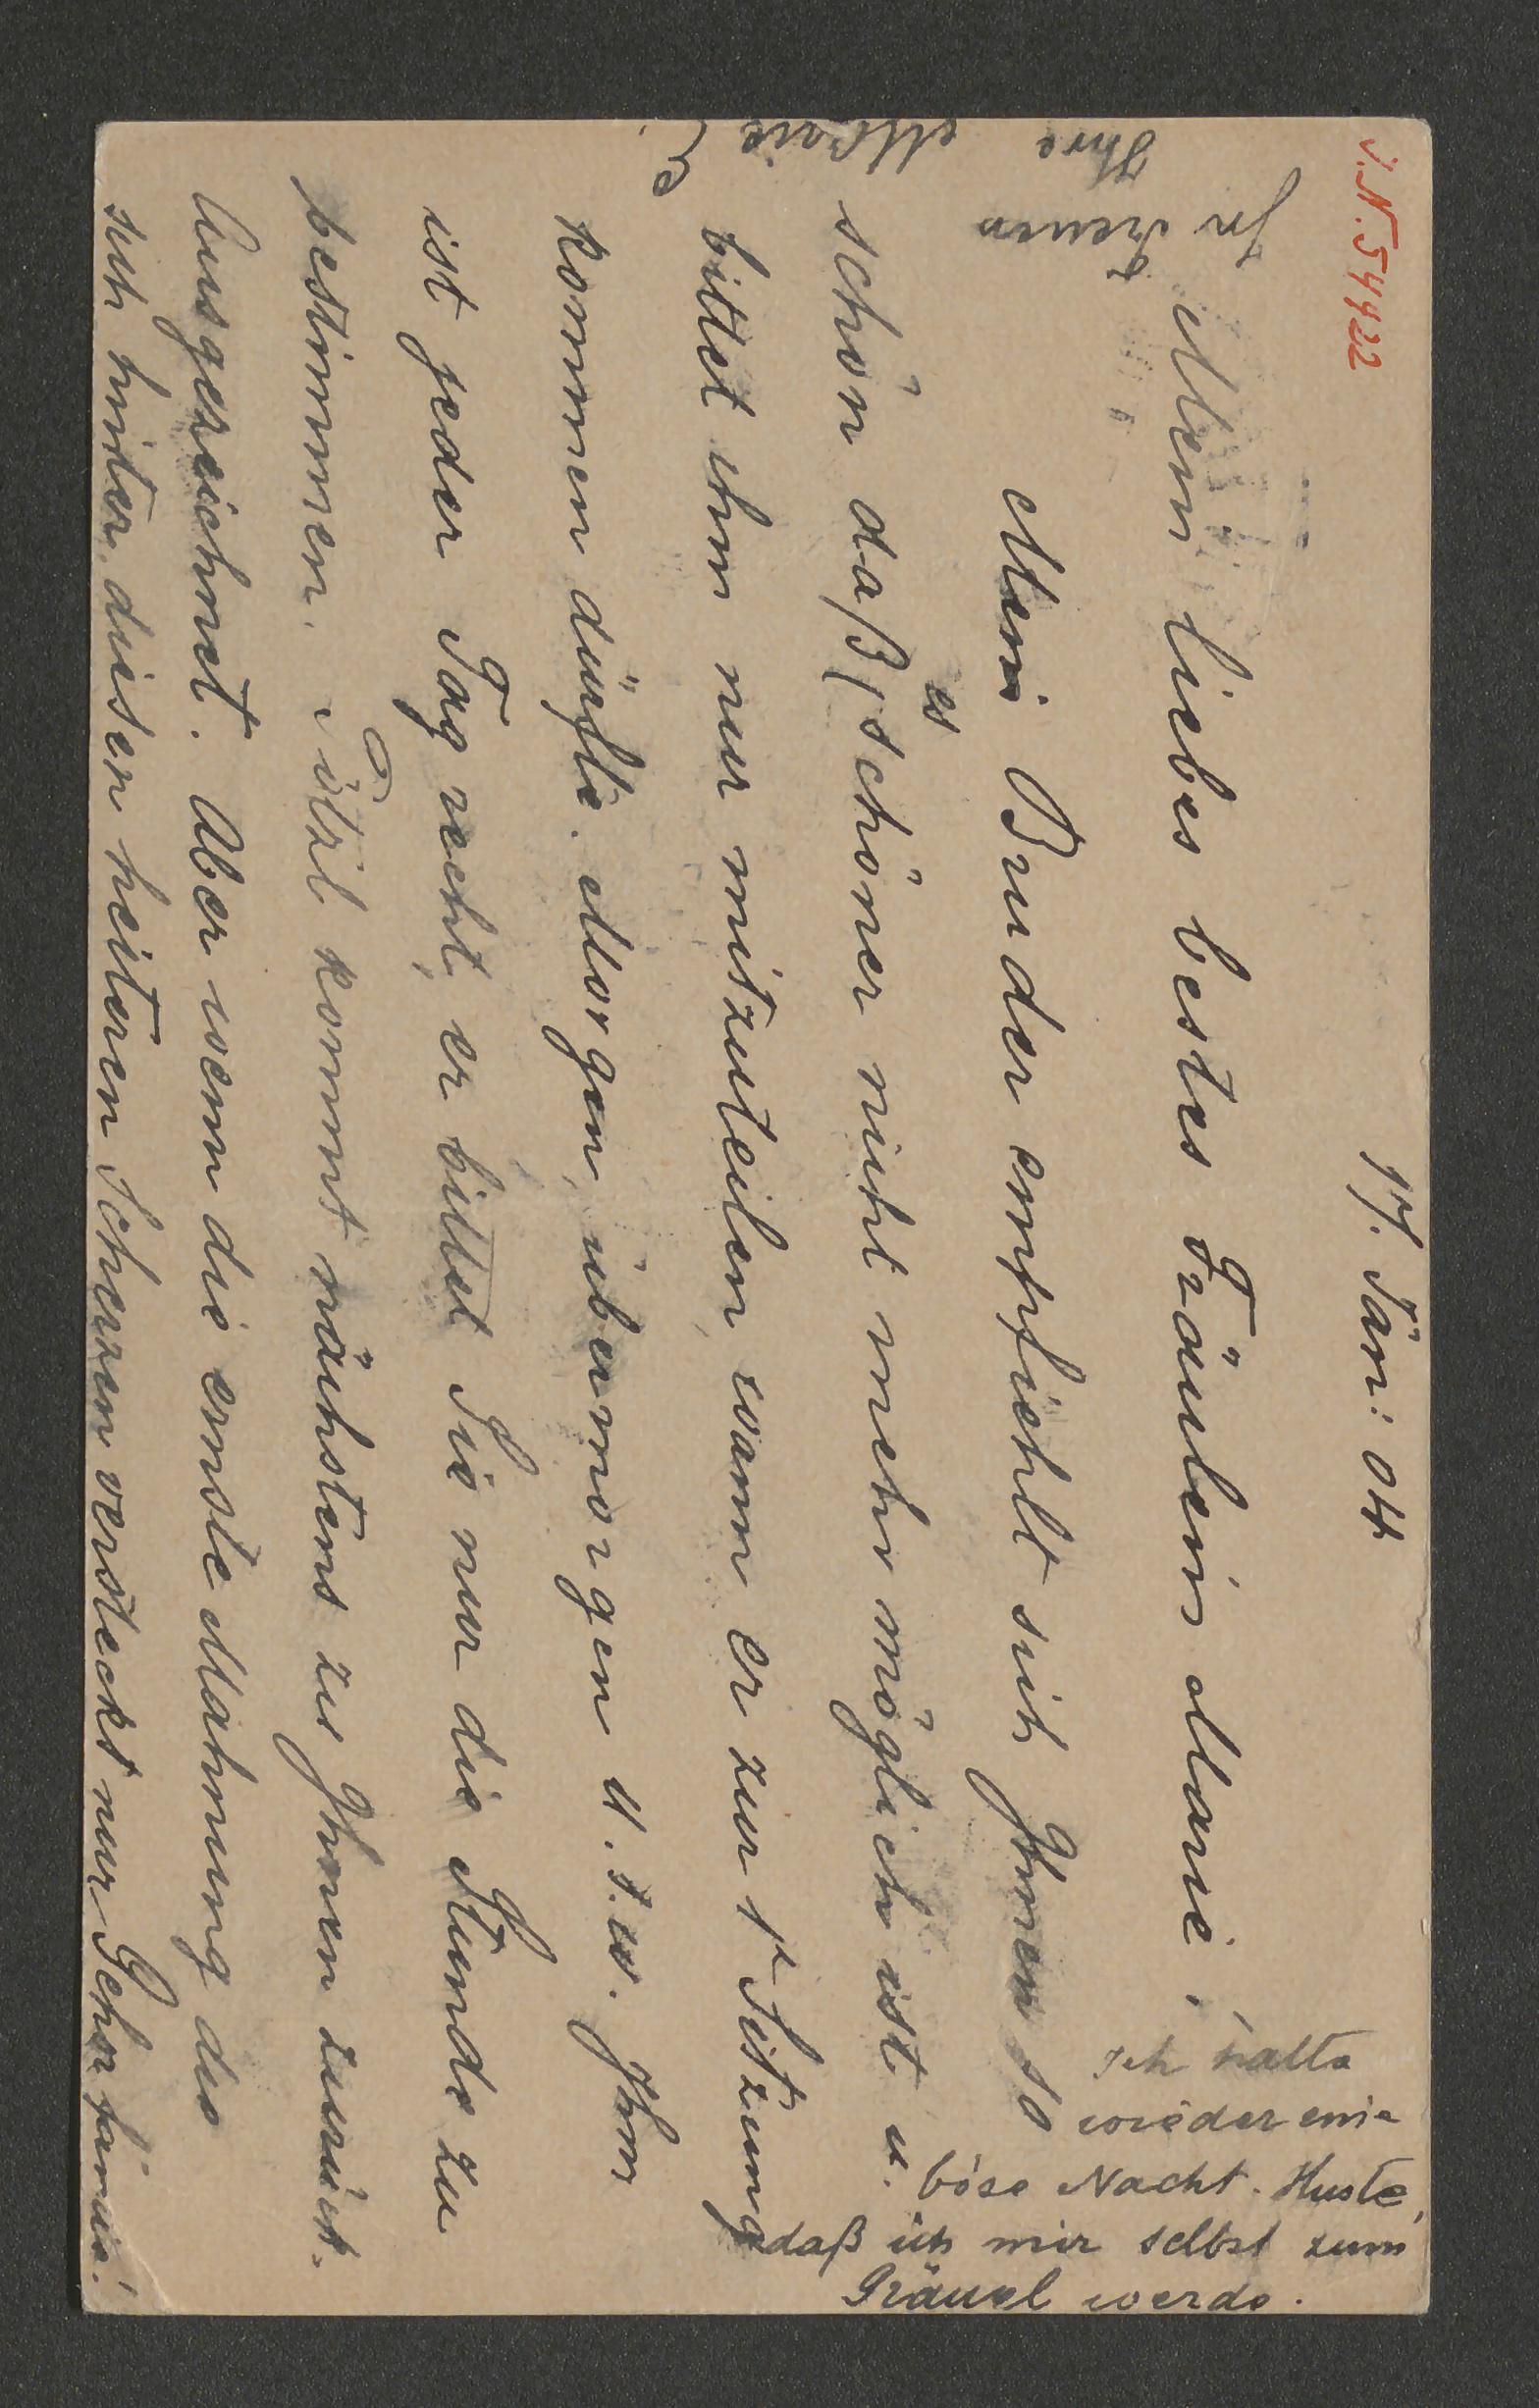 J. N. 54422
17. Jän: 04
Mein liebes bestes Fräulein Marie!
Mein Bruder empfiehlt sich Ihnen so
es
schön daß schöner nicht mehr möglich ist u.
bittet ihm nur mitzuteilen, wann er zur 1t Sitzung
kommen dürfte. Morgen, übermorgen u. s. w. Ihm
ist jeder Tag recht, er bittet Sie nur die Stunde zu
bestimmen. kommt nächstens zu Ihnen zurück.
Ausgezeichnet. Aber wenn die ernste Mahnung die
sich hinter diesen heiteren Scherzen versteckt nur Gehör fände!
Ich hatte
wieder eine
böse Nacht. Huste,
daß ich mir selbst zum
Gräuel werde.
In Treuen
Ihre
Marie
E